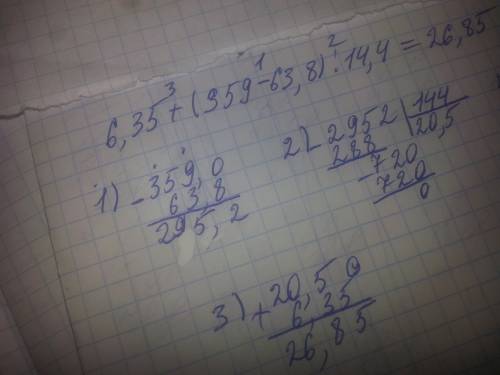 6,35 + (359 - 63,8) : 14,4 = 26,85
3 1 2
1) - 359,0
63,8
295,2
2) - 2952 | 144
288 20,5
- 720
720
0
3) + 20,50
6,35
26,85